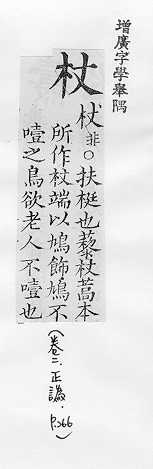 增廣字學舉隅
杖
非○扶梃也藜杖蒿本
所作杖端以鳩飾鳩不
噎之鳥欲老人不噎也
(卷二.正譌.P.266)